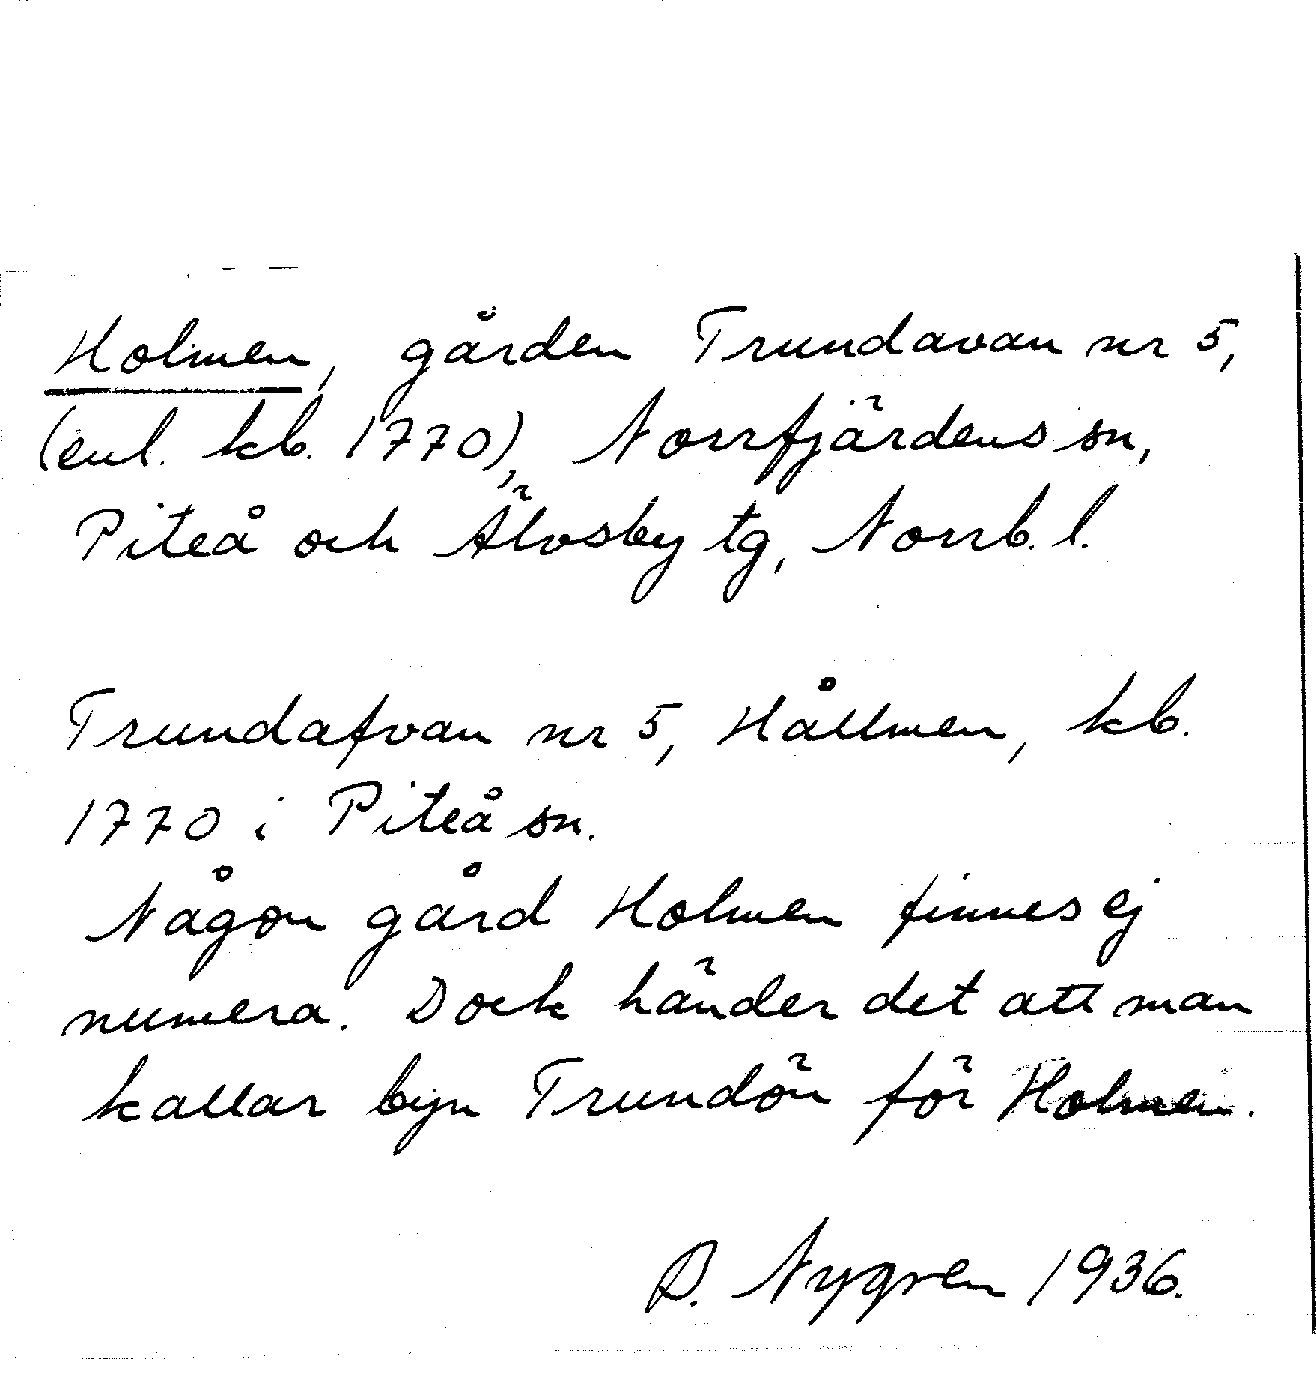 Holmen, gården Trundavan nr 5,
(enl. kb. 1770), Norrfjärdens sn,
Piteå och Älvsby tg, Norrb. l.
Trundafvan nr 5, Hållmen, kb.
1770 i Piteå sn.
Någon gård Holmen finnes ej
numera. Dock händer det att man
kallar byn Trundön för Holmen.
B. Nygren 1936.